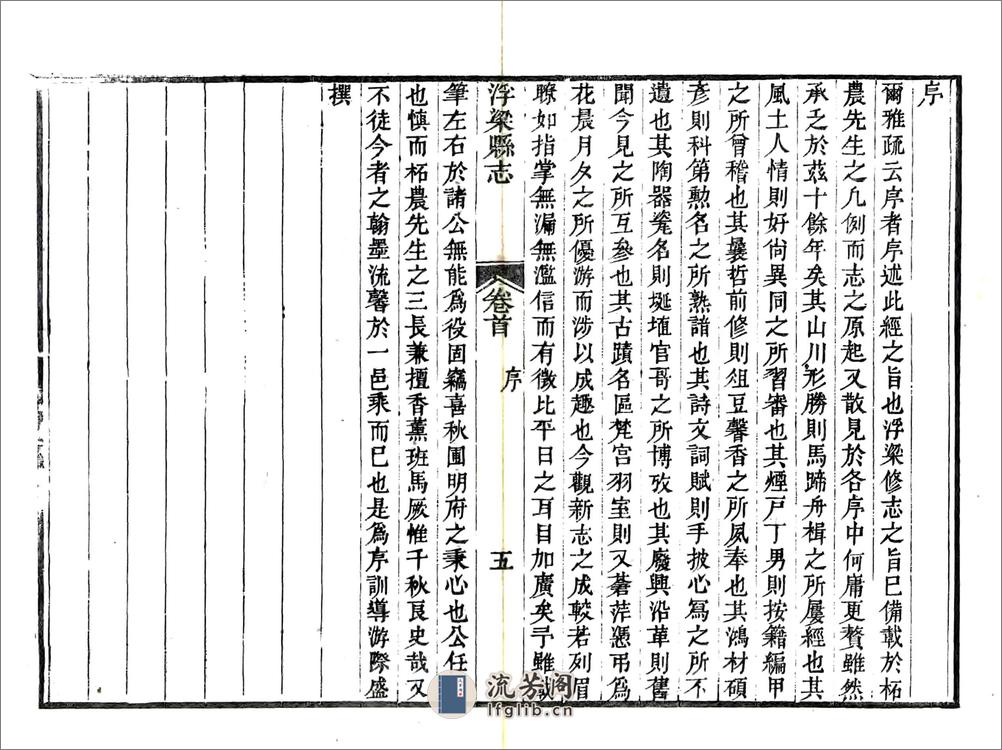 序
爾雅疏云序者序述此經之旨也浮梁修志之旨已備載於柘
農先生之凡例而志之原起又散見於各序中何庸更贅雖然
承乏於茲十餘年矣其山川形勝則馬蹄舟楫之所屢經也其
風土人情則好尙異同之所習審也其煙戸丁男則按籍編甲
之所曾稽也其曩哲前修則俎豆馨香之所夙奉也其鴻材碩
彥則科第勲名之所熟諳也其詩文詞賦則手披心寫之所不
遺也其陶器窰名則埏埴官哥之所博攷也其廢興沿革則舊
聞今見之所互參也其古蹟名區梵宫羽室則又蒼茫憑弔爲
花晨月夕之所優游而涉以成趣也今觀新志之成較若列眉
瞭如指掌無漏無濫信而有徵比平日之耳目加廣矣予雖載
浮梁縣志
卷首
序
五
筆左右於諸公無能爲役固竊喜秋圃明府之秉心也公任
也愼而柘農先生之三長兼擅香薰班馬厥惟千秋良史哉又
不徒今者之翰墨流馨於一邑乘而已也是爲序訓導游際盛
撰
流芳阁
lfglib.cn